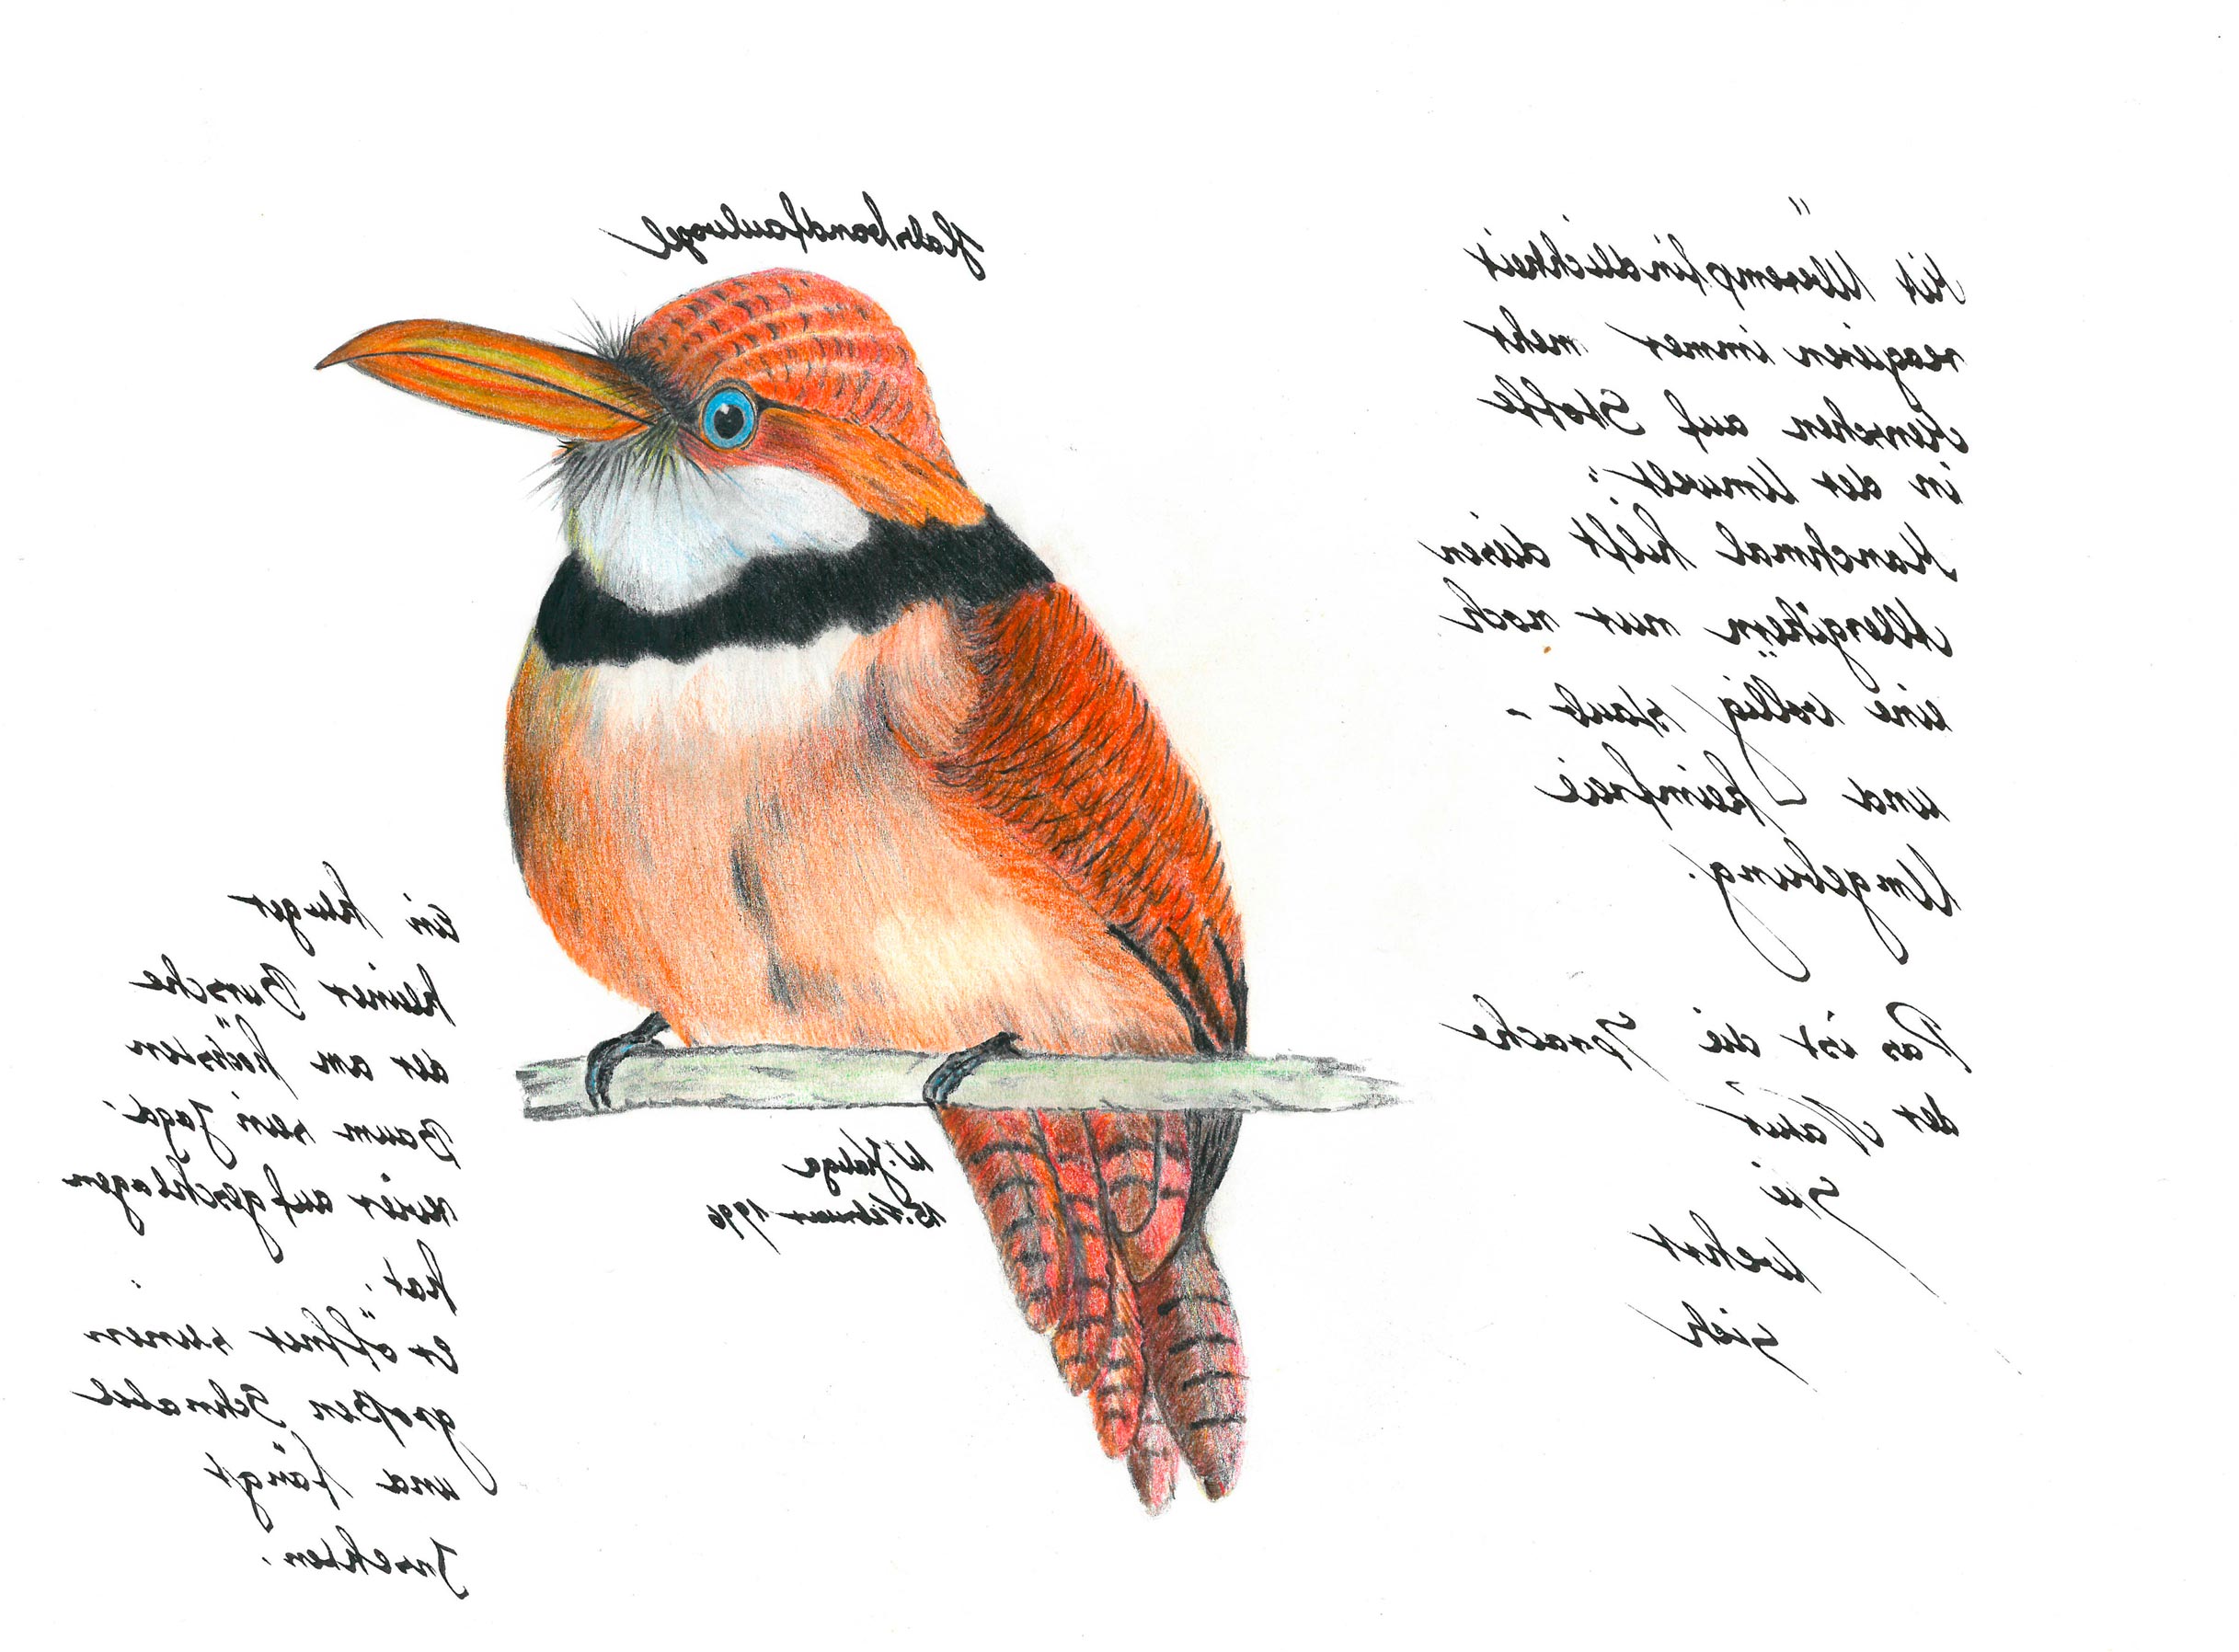 Halsbandfaulvogel
Mit Überempfindlichkeit
reagieren immer mehr
Menschen auf Stoffe
in der Umwelt".
Manchmal hilft diesen
Allergikern nur noch
eine völlig staub-
und keimfreie
Umgebung!
Das ist die Sprache
der Natur
Sie
wehrt
sich
Ein kluger
kleiner Bursche
der am höchsten
Baum sein Jagd-
revier aufgeschlagen
hat.
Er öffnet seinen
großen Schnabel
und fängt
Insekten.
15. Februar 1996